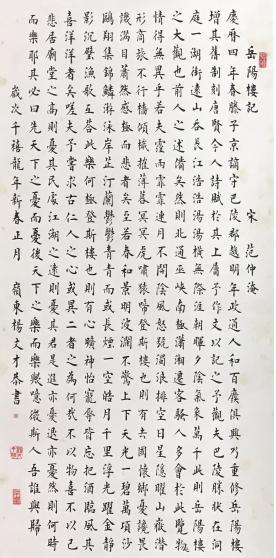 岳陽樓記 宋 范仲淹
慶曆四年春滕子京謫守巴陵郡越明年政通人和百廢俱興乃重修岳陽樓
增其舊制刻唐賢今人詩賦於其上屬予作文以記之予觀夫巴陵勝狀在洞
庭一湖銜遠山吞長江浩浩湯湯橫無際涯朝暉夕陰氣象萬千此則岳陽樓
之大觀也前人之述備矣然則北通巫峽南極瀟湘遷客騷人多會於此覽物
情得無異乎若夫霪雨霏霏連月不開陰風怒號濁浪排空日星隱曜山嶽潛
形商旅不行檣傾楫摧薄暮冥冥虎嘯猿啼登斯樓也則有去國懷鄉憂讒畏
譏滿目蕭然感極而悲者矣至若春和景明波瀾不驚上下天光一碧萬頃沙
鷗翔集錦鱗游泳岸芷汀蘭鬱鬱青青而或長煙一空皓月千里浮光躍金靜
影沉璧漁歌互答此樂何極登斯樓也則有心曠神怡寵辱皆忘把酒臨風其
喜洋洋者矣嗟夫予嘗求古仁人之心或異二者之為何哉不以物喜不以己
悲居廟堂之高則憂其民處江湖之遠則憂其君是進亦憂退亦憂然則何時
而樂耶其必曰先天下之憂而憂後天下之樂而樂歟噫微斯人吾誰與歸
歲次千禧龍年新春正月 嶺東楊文才恭書